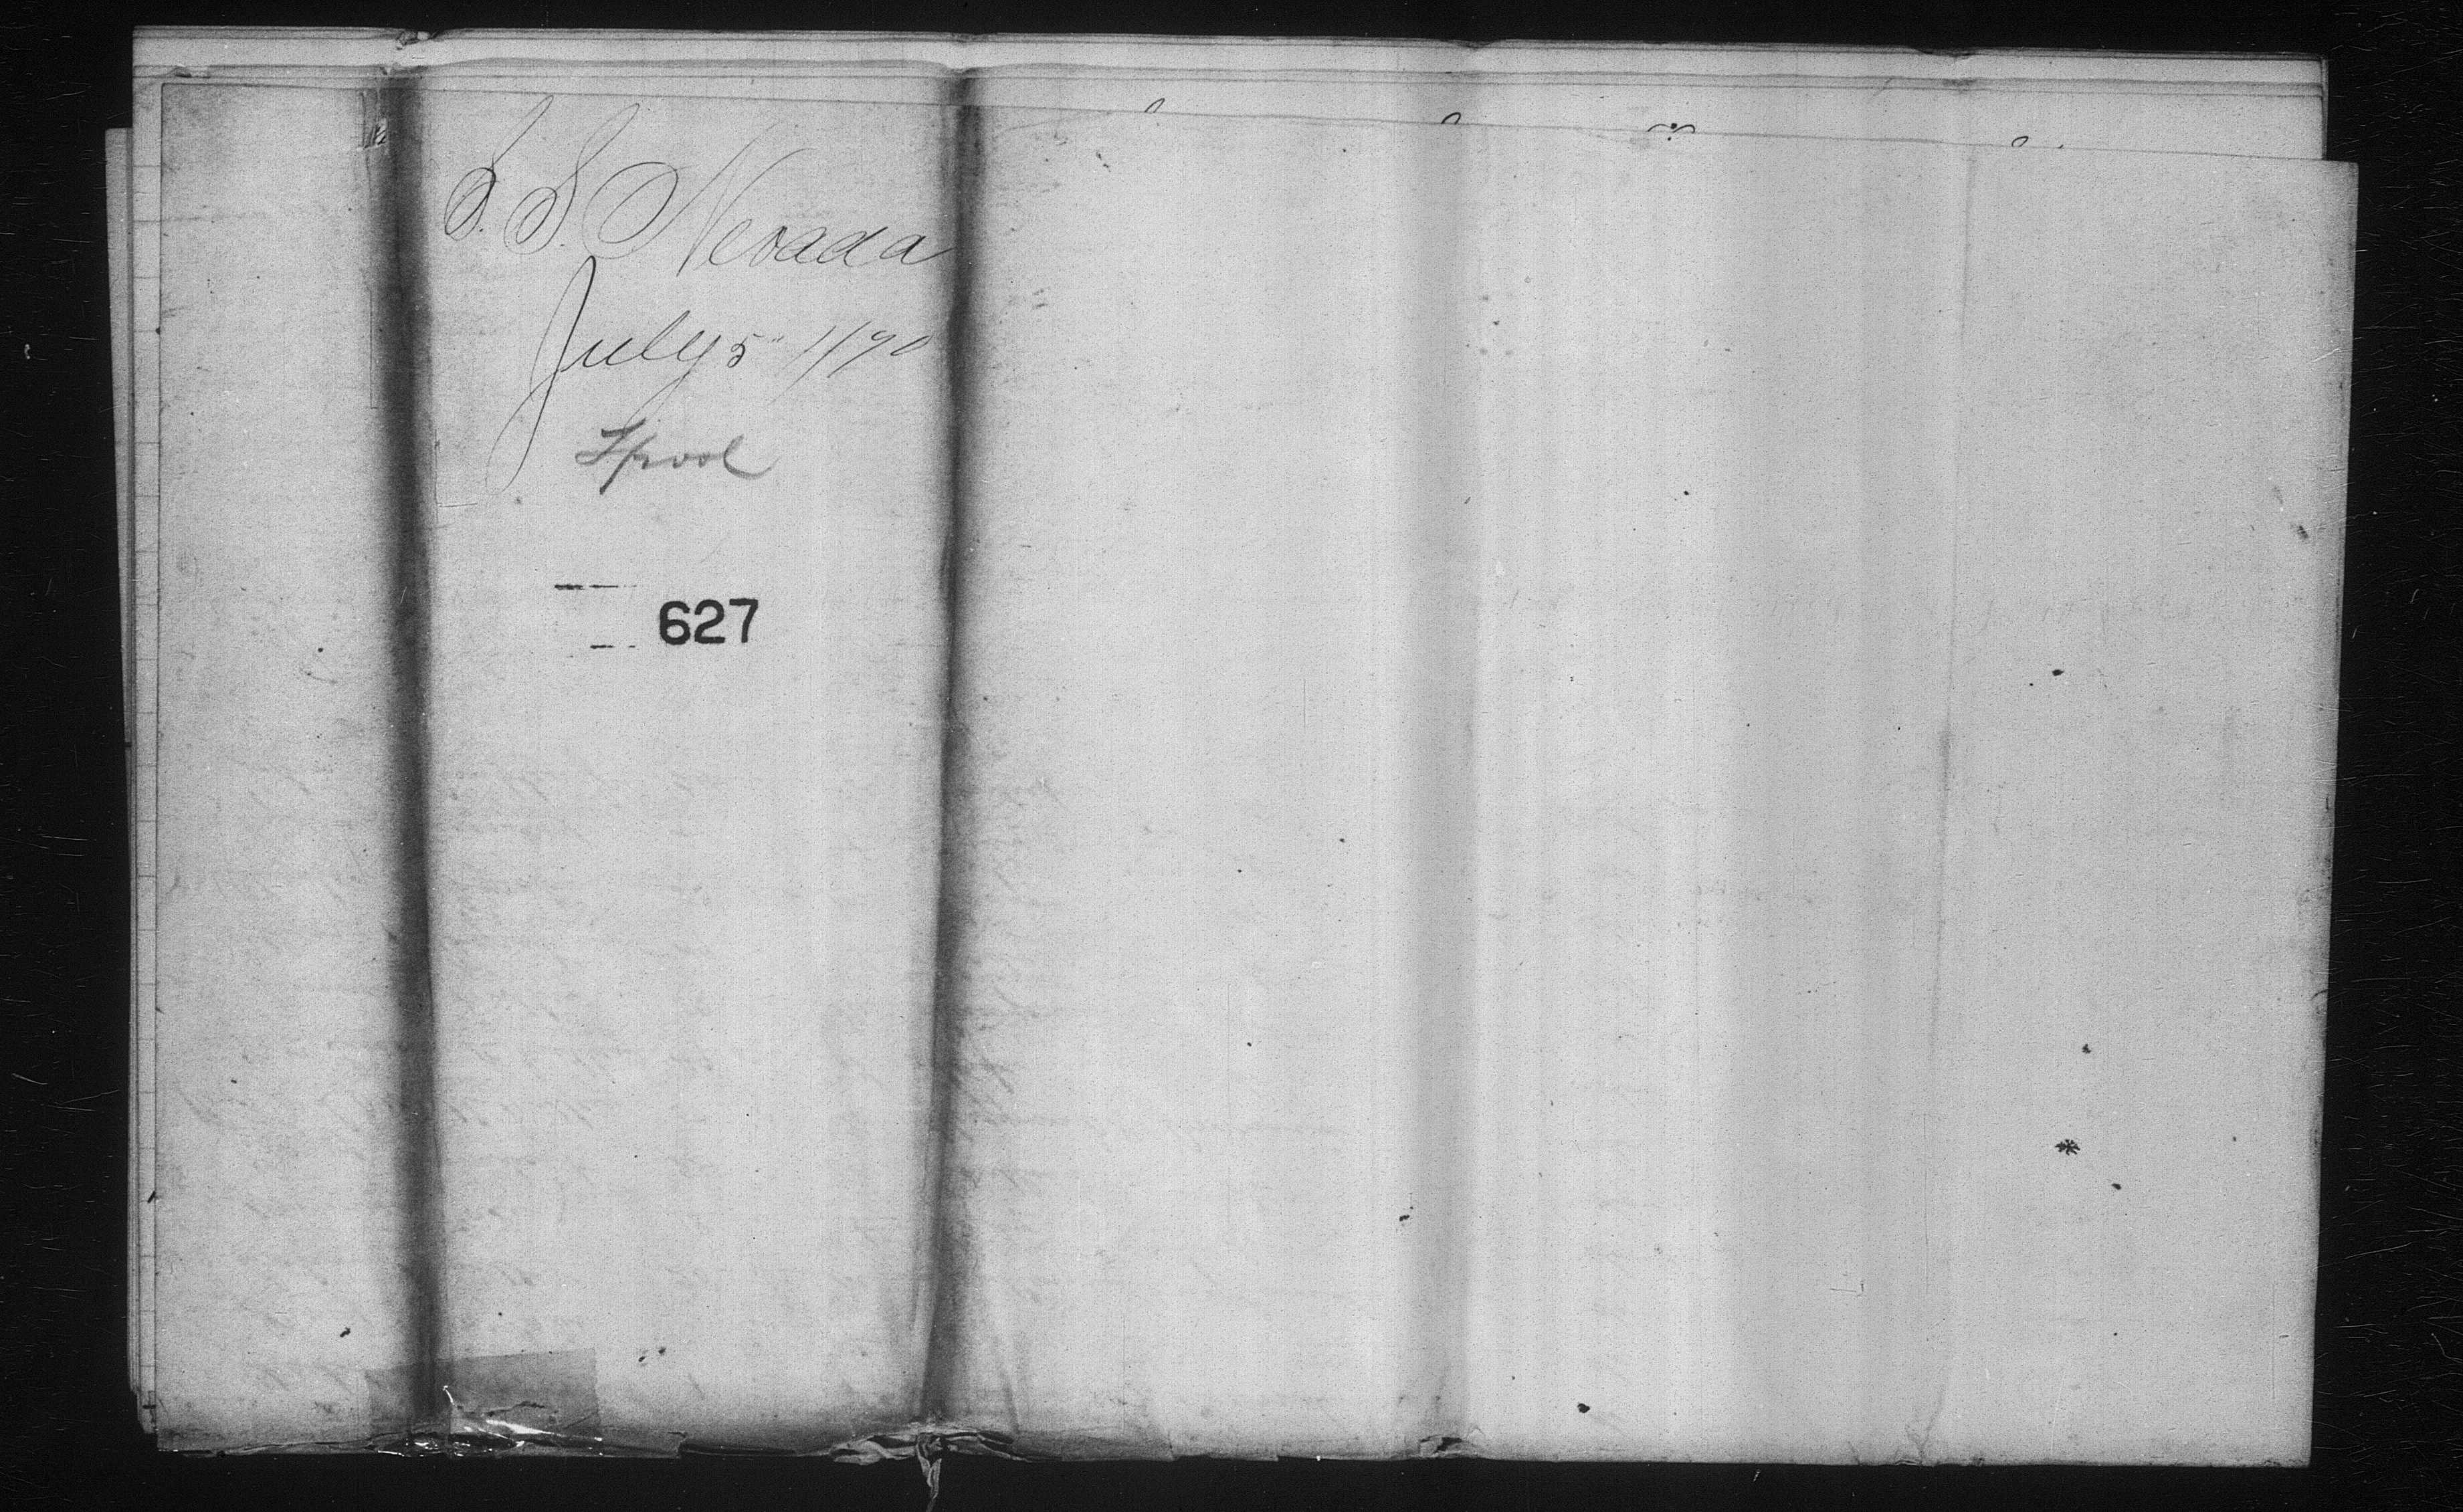 S. S. Nevada
July 5" 1/90
Lpool
627